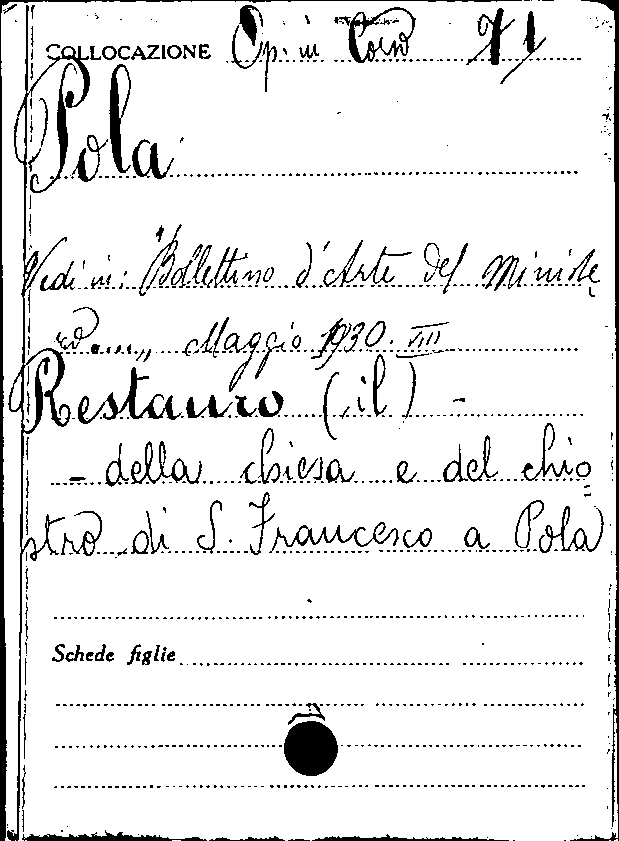 COLLOCAZIONE Op. in Corso 71
Pola
Vedi in: "Bollettino d'Arte del Ministe
ro...„ Maggio 1930. VIII
Restauro (il) -
- della chiesa e del chio
stro di S. Francesco a Pola
Schede figlie